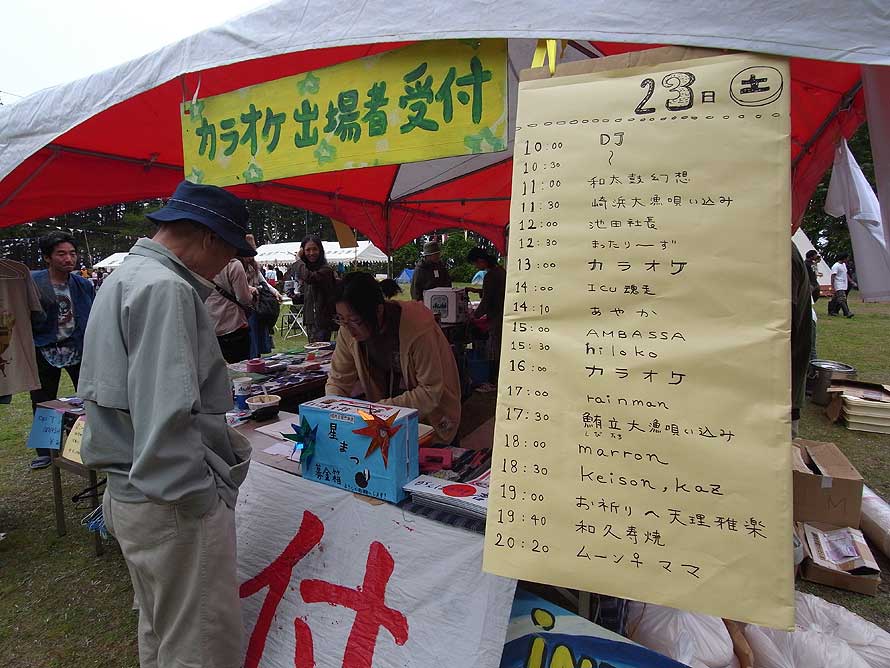 カラオケ出場者受付
23日 土
10:00 DJ
10:30 〜
11:00 和太鼓幻想
11:30 崎浜大漁唄い込み
12:00 池田社長
12:30 まったり〜ず
13:00 カラオケ
14:00 ICU 魂走
14:10 あやか
15:00 AMBASSA
15:30 hiloko
16:00 カラオケ
17:00 rainman
17:30 鮪立大漁唄い込み
しびたち
18:00 marron
18:30 Keison, kaz
19:00 お祈りへ天理雅楽
19:40 和久寿焼
20:20 ムーン♀ママ
星まつり
募金箱
付